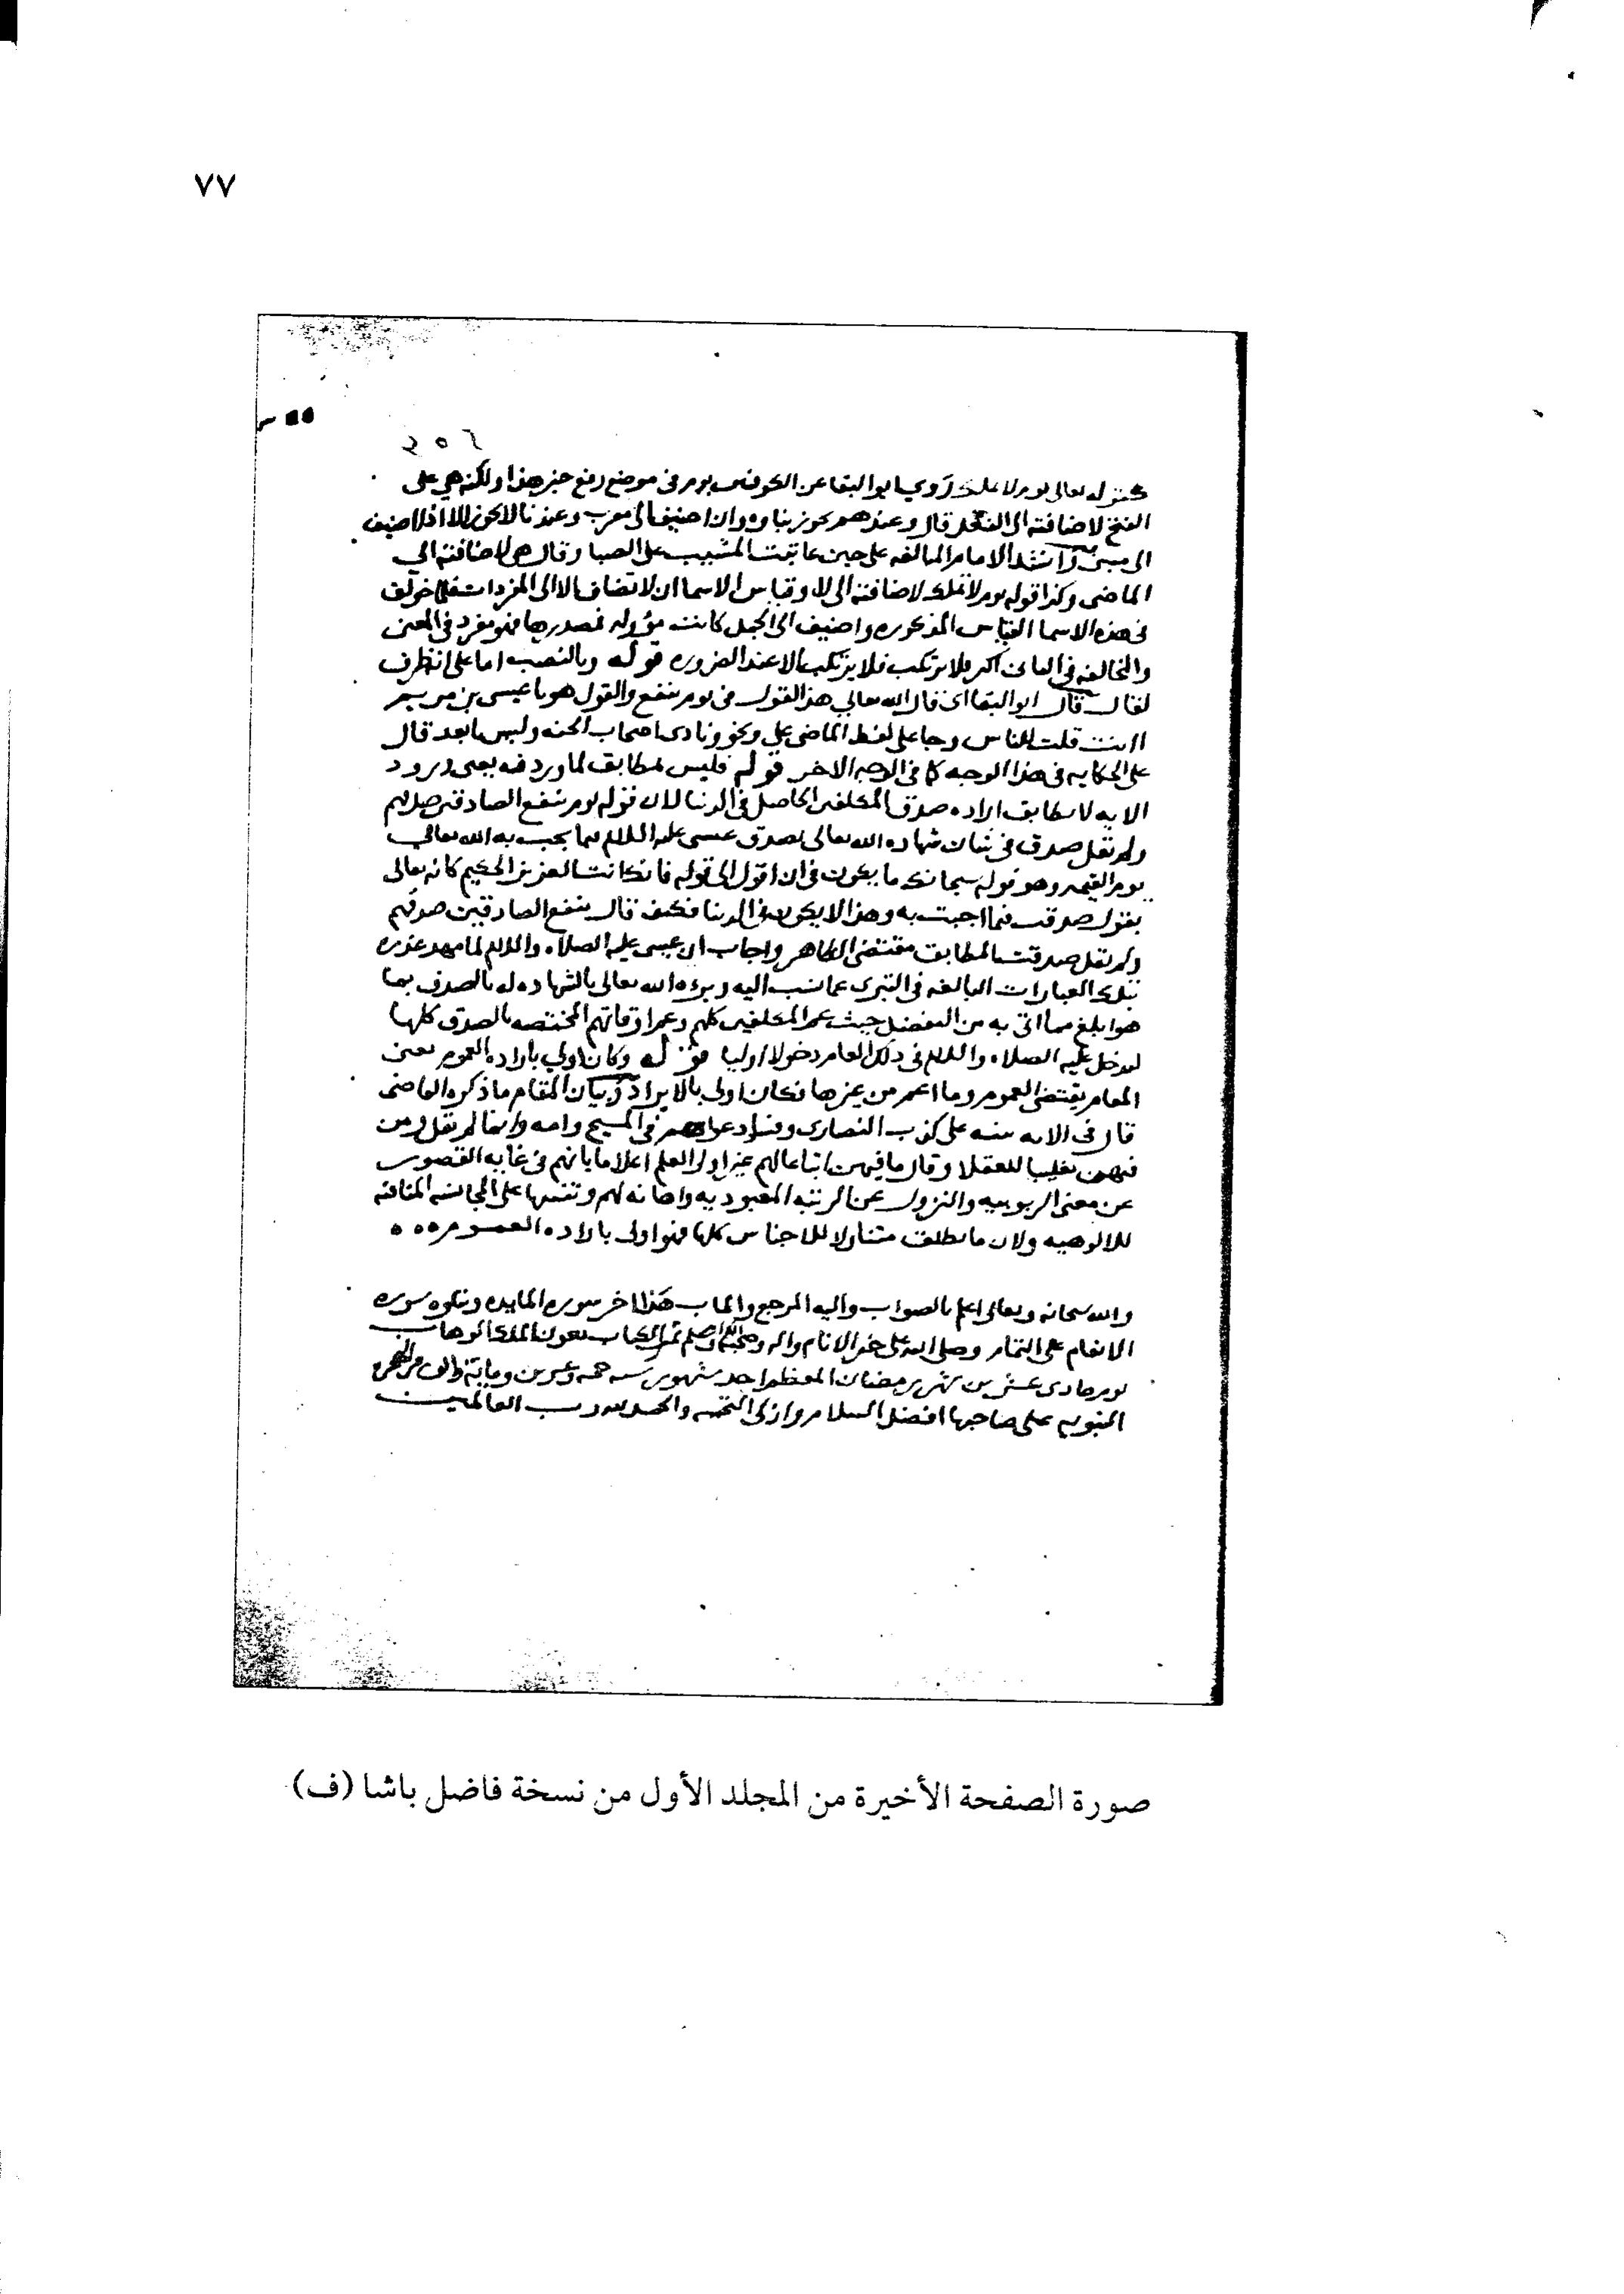 ٧٧
كقوله تعالى يوم لا تملك روي ابو البقا عن الكوفيين يوم في موضع رفع خبر هذا ولكنه بني على
الفتح لاضافته الى الفعل قال وعندهم يجوز بناوه وان اضيف الى معرب وعندنا لا يجوز الا اذا اضيف
الى مبني وانشد الامام المالقه على حين عاتبت المشيب على الصبا وقال بني لاضافته الى
الماضي وكذا قوله يوم لا تملك لاضافته الى لا وقياس الاسما ان لا تضاف الا الى المفردات فلما خولف
في هذه الاسما القياس المذكوره واضيف الى الجمل كانت مؤوله فصدرها فهو مفرد في المعنى
والمخالفه في العاني اكبر فلا يرتكب الا عند الضروره قوله وبالنصب اما على انه ظرف
لقال قال ابو البقا اى قال الله تعالى هذا القول في يوم ينفع والقول هو يا عيسى بن مريم
اانت قلت للناس وجا على لفظ الماضي على ونحو ونادى اصحاب الجنه وليس ما بعد قال
على الحكايه في هذا الوجه كما في الوجه الاخر قوله فليس بمطابق لما ورد فيه يعني ورود
الايه لا يطابق اراده صدق المكلفين الحاصل في الدنيا لان قوله يوم ينفع الصادقين صدقهم
ولم تقل صدق في شان شهاده الله تعالى بصدق عيسى عليه السلام بما يجيب به الله تعالى
يوم القيمه وهو قوله سبحانك ما يكون لي ان اقول الى قوله فانك انت العزيز الحكيم كانه تعالى
يقول صدقت فيما اجبت به وهذا لا يكون في الدنيا فكيف قال ينفع الصادقين صدقهم
ولم تقل صدقت المطابق مقتضى الظاهر واجاب ان عيسى عليه الصلاه والسلام لما مهد عذره
بتلك العبارات البالغه في التبرى عما نسب اليه وبرءه الله تعالى بالشهاده له بالصدق بما
هو ابلغ مما اتى به من التفضل حيث عم المكلفين كلهم وعم اوقاتهم المختصه بالصدق كلها
ليدخل عليه الصلاه والسلام في ذلك العام دخولا اوليا قوله وكان اولى باراده العموم يعني
المقام يقتضي العموم وما اعم من غيرها فكان اولى بالايراد وبيان المقام ما ذكره القاضي
قال في الايه تنبيه على كذب النصارى وفساد دعواهم في المسيح وامه وانما لم يقل ومن
فيهن تغليبا للعقلا وقال ما فيهن اتباعا لهم غير اولى العلم اعلاما بانهم في غايه القصور
عن معنى الربوبيه والنزول عن الرتبه المعبوديه واهانه لهم وتنبيها على المجانسه المنافيه
للالوهيه ولان ما يطلق متناولا للاجناس كلها فهو اولى باراده العموم
والله سبحانه وتعالى اعلم بالصواب واليه المرجع والماب هذا اخر سوره المايده وتتلوه سوره
الانعام على التمام وصلى الله على خير الانام واله وصحبه وسلم تم الكتاب بعون الملك الوهاب
يوم حادى عشرين شهر رمضان المعظم احد شهور سنه خمسه وعشرين ومايه والف من الهجره
النبويه على صاحبها افضل السلام وازكى التحيه والحمد لله رب العالمين
صورة الصفحة الأخيرة من المجلد الأول من نسخة فاضل باشا (ف)